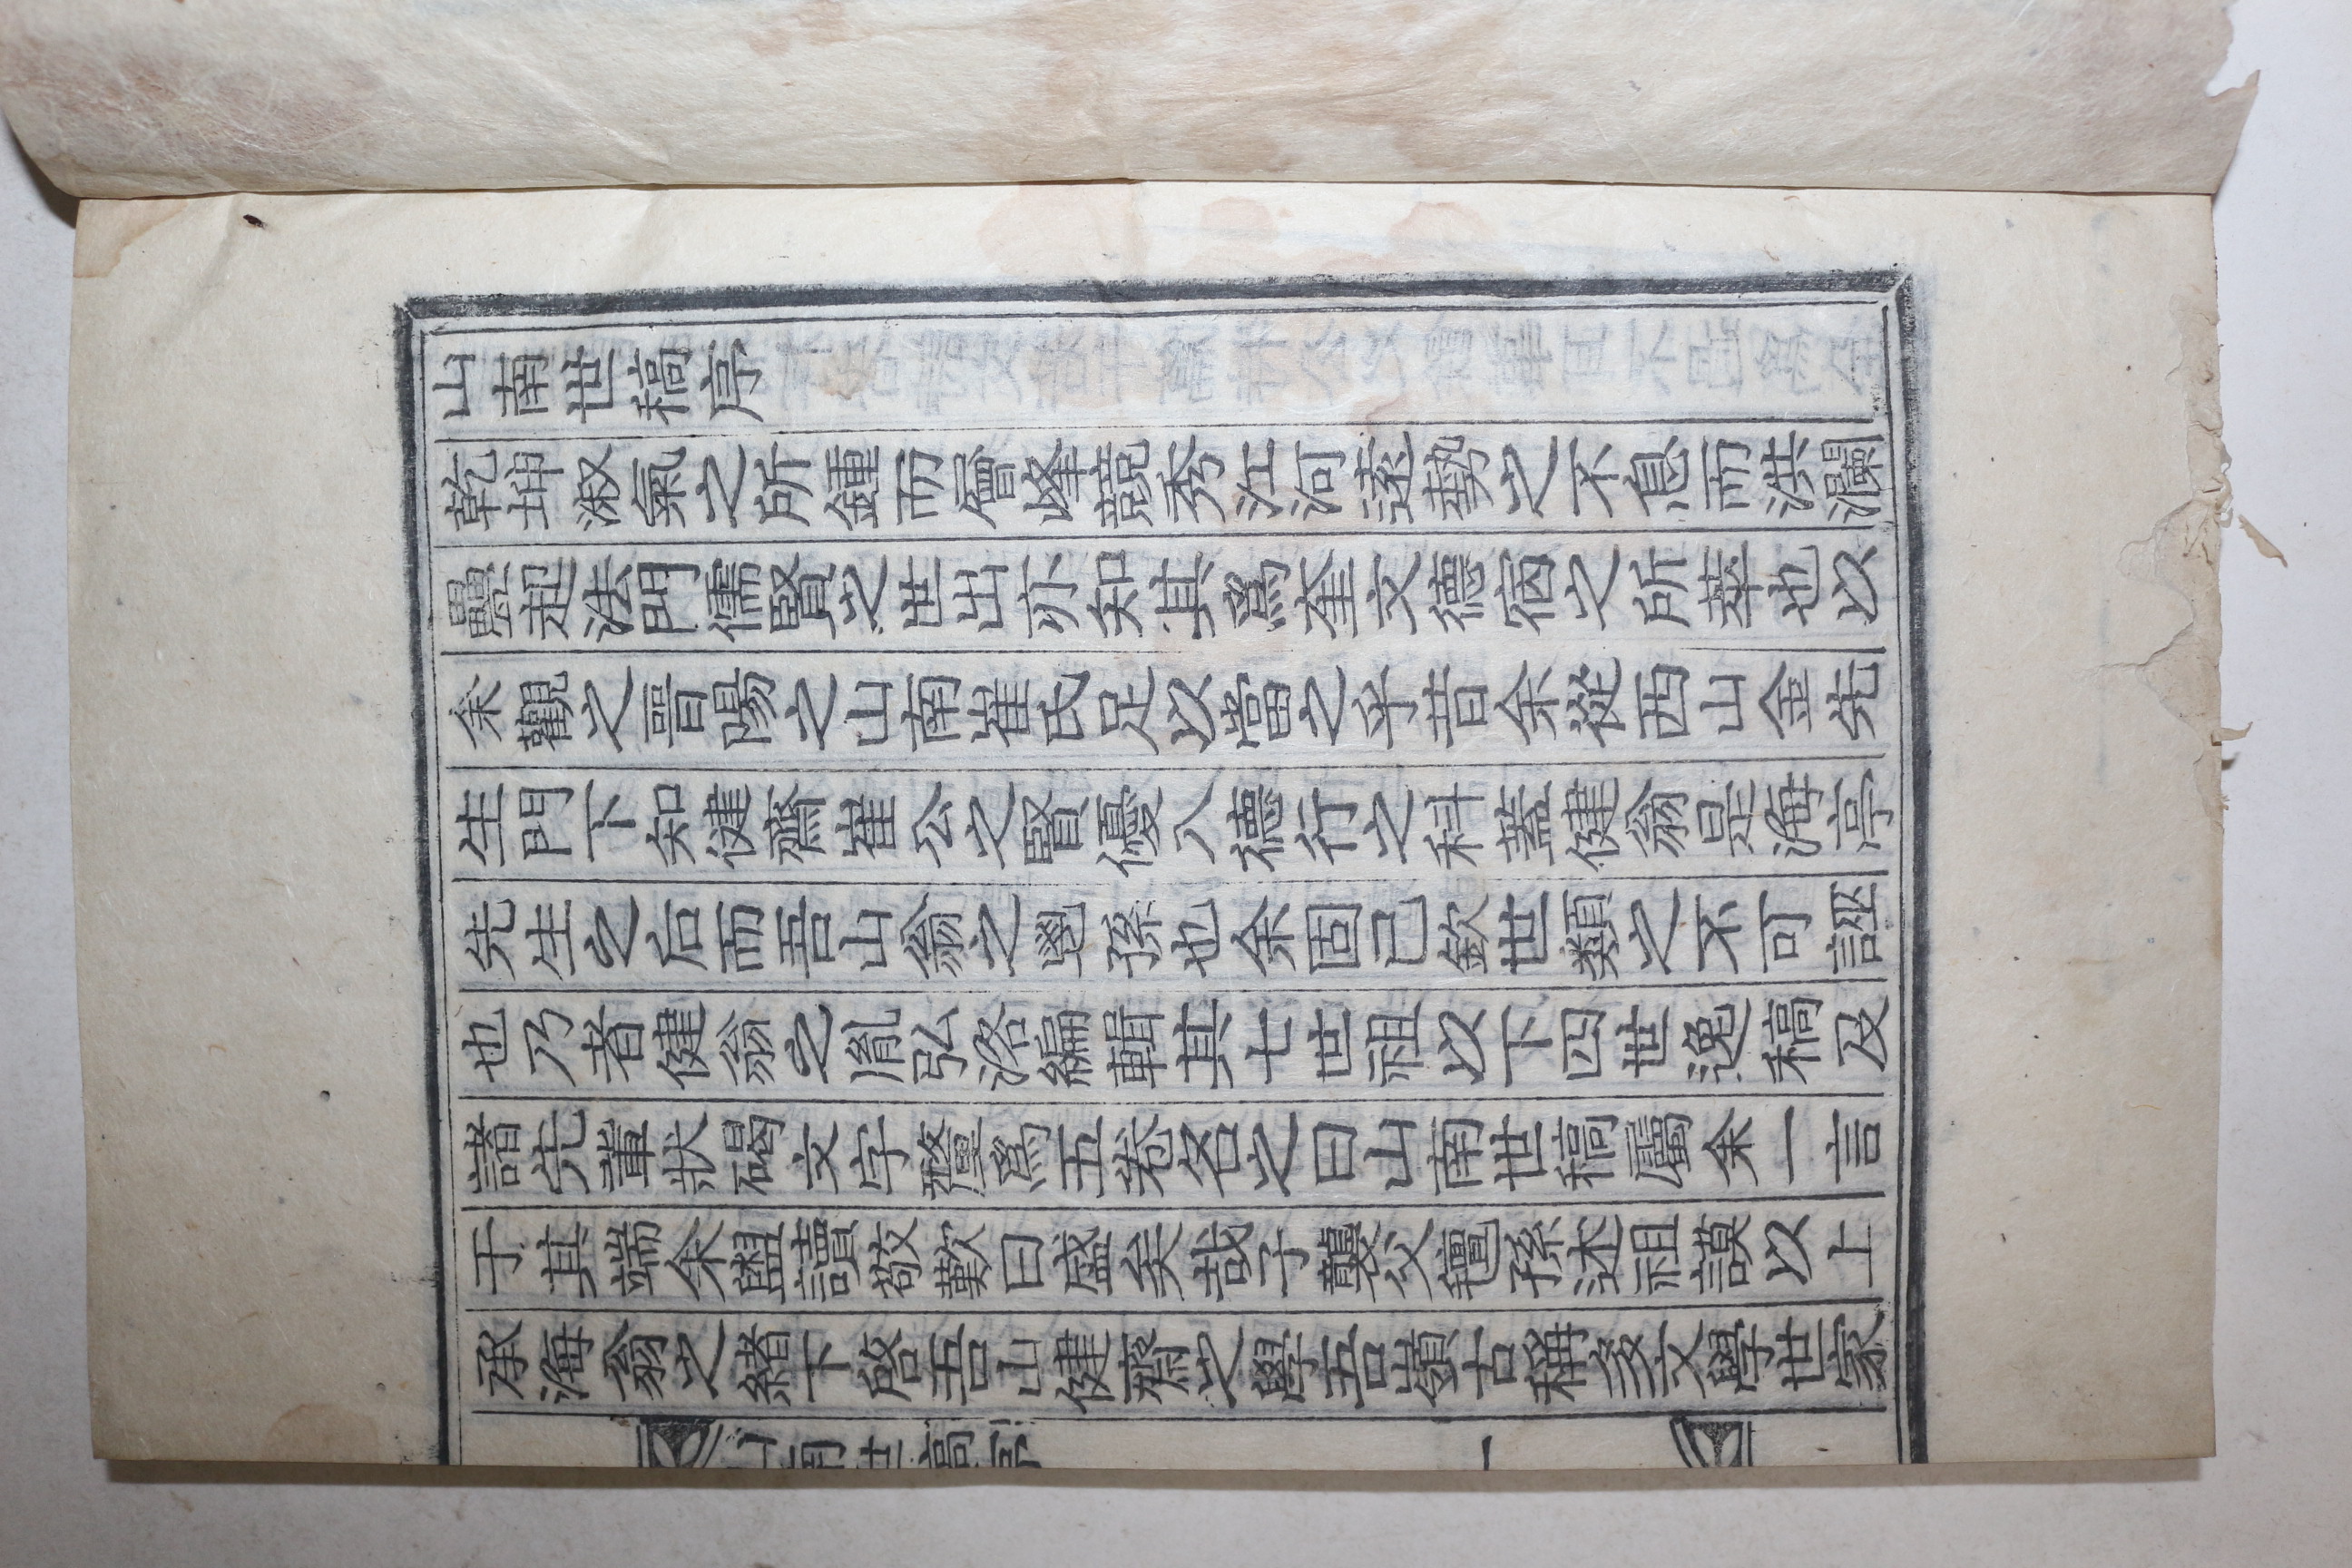 山南世稿序
乾坤淑氣之所鍾而層峰競秀江河遠勢之不息而洪瀾
疊起法門儒賢之世出亦知其爲奎文德宿之所萃也以
余觀之晉陽之山南崔氏足以當之乎昔余從西山金先
生門下知健齋崔公之賢優入德行之科蓋健翁是海亭
先生之后而吾山翁之嗣孫也余固已欽世類之不可誣
也乃者健翁之胤弘洛編輯其七世祖以下四世逸稿及
諸先輩狀碣文字釐爲五卷名之曰山南世稿屬余一言
于其端余盥讀敬歎曰盛矣哉子襲父氊孫述祖謨以上
承海翁之緖下啓吾山健齋之學吾嶺古稱多文學世家
山南世稿序 一